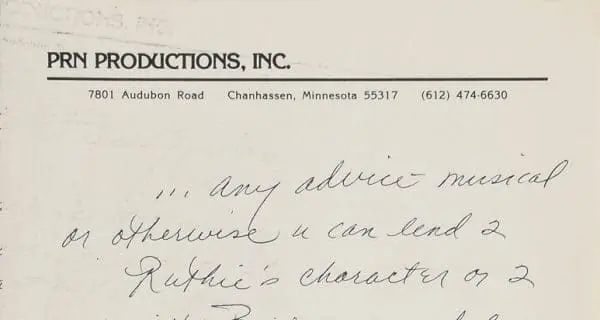 PRN PRODUCTIONS, INC.
7801 Audubon Road Chanhassen, Minnesota 55317 (612) 474-6630
... any advice musical
or otherwise u can lend 2
Ruthie's character or 2